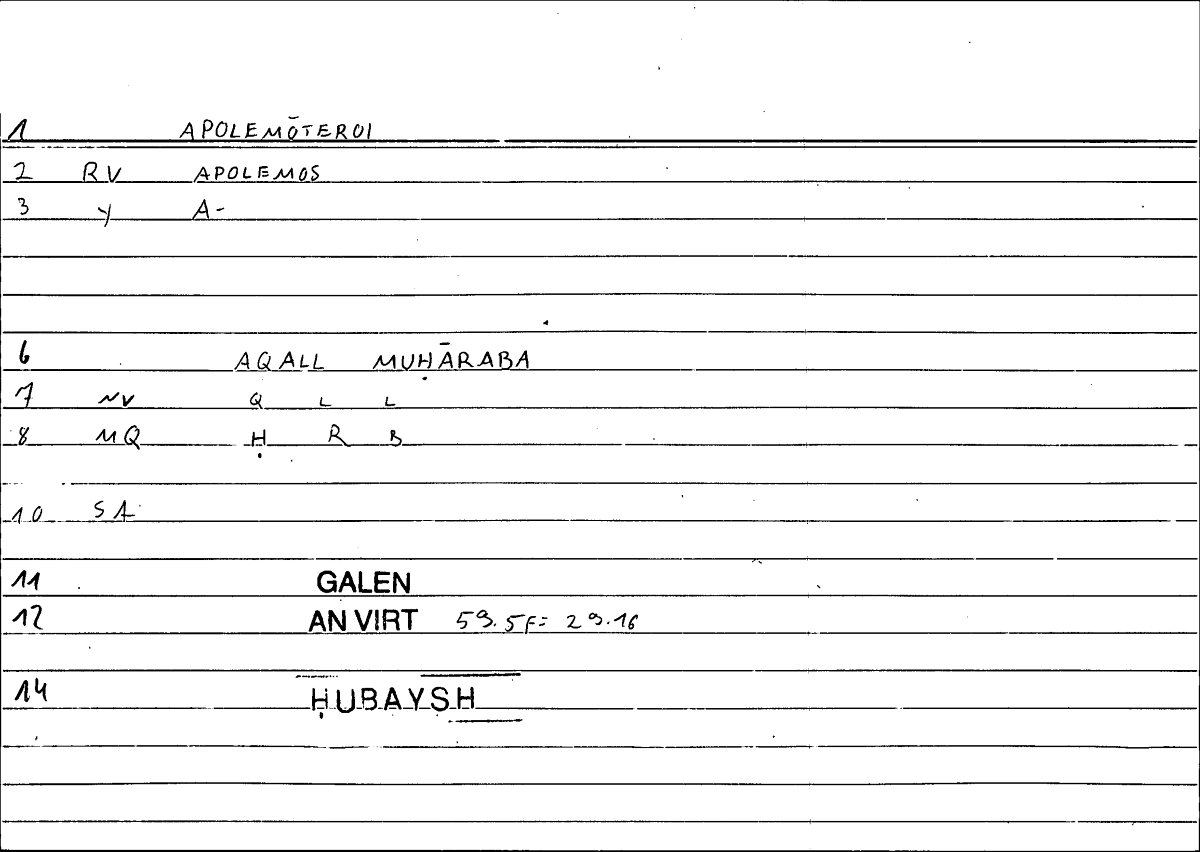 1 APOLEMŌTEROI
2 RV APOLEMOS
3 Y A-
6 AQALL MUḤĀRABA
7 NV Q L L
8 MQ Ḥ R B
10 SA
11 GALEN
12 AN VIRT 59.5F= 29.16
14 ḤUBAYSH